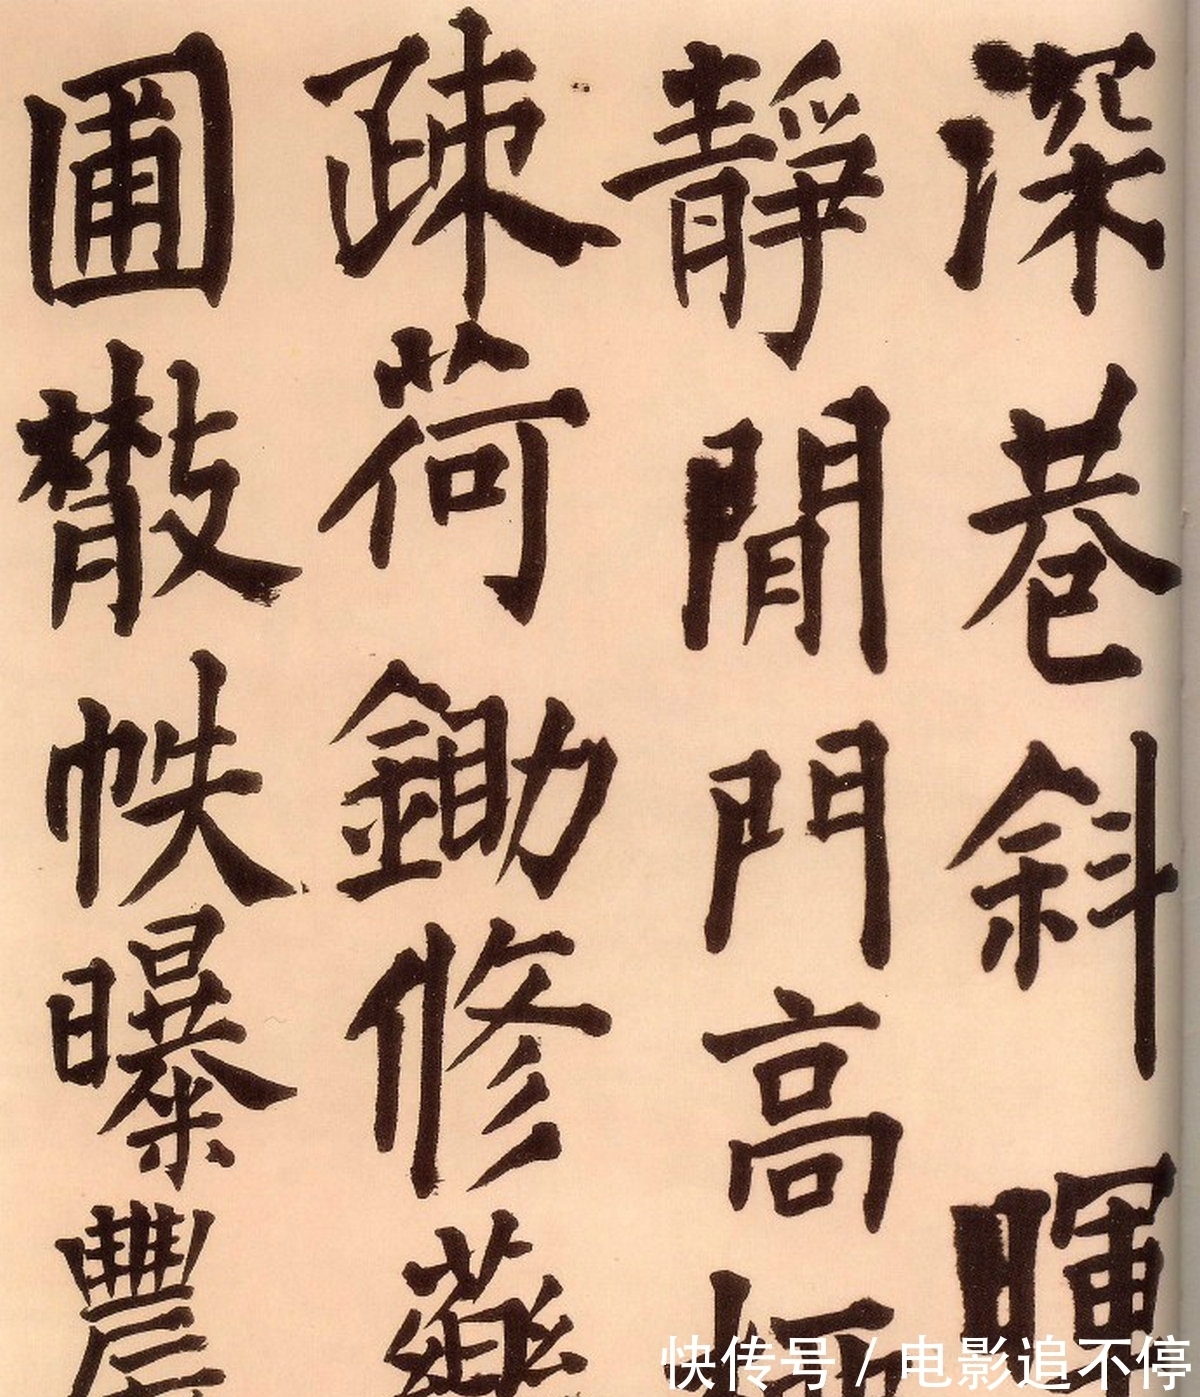 深巷斜暉
靜閒門高
疎荷鋤修藥
圃散帙曝農
快传号 / 电影追不停